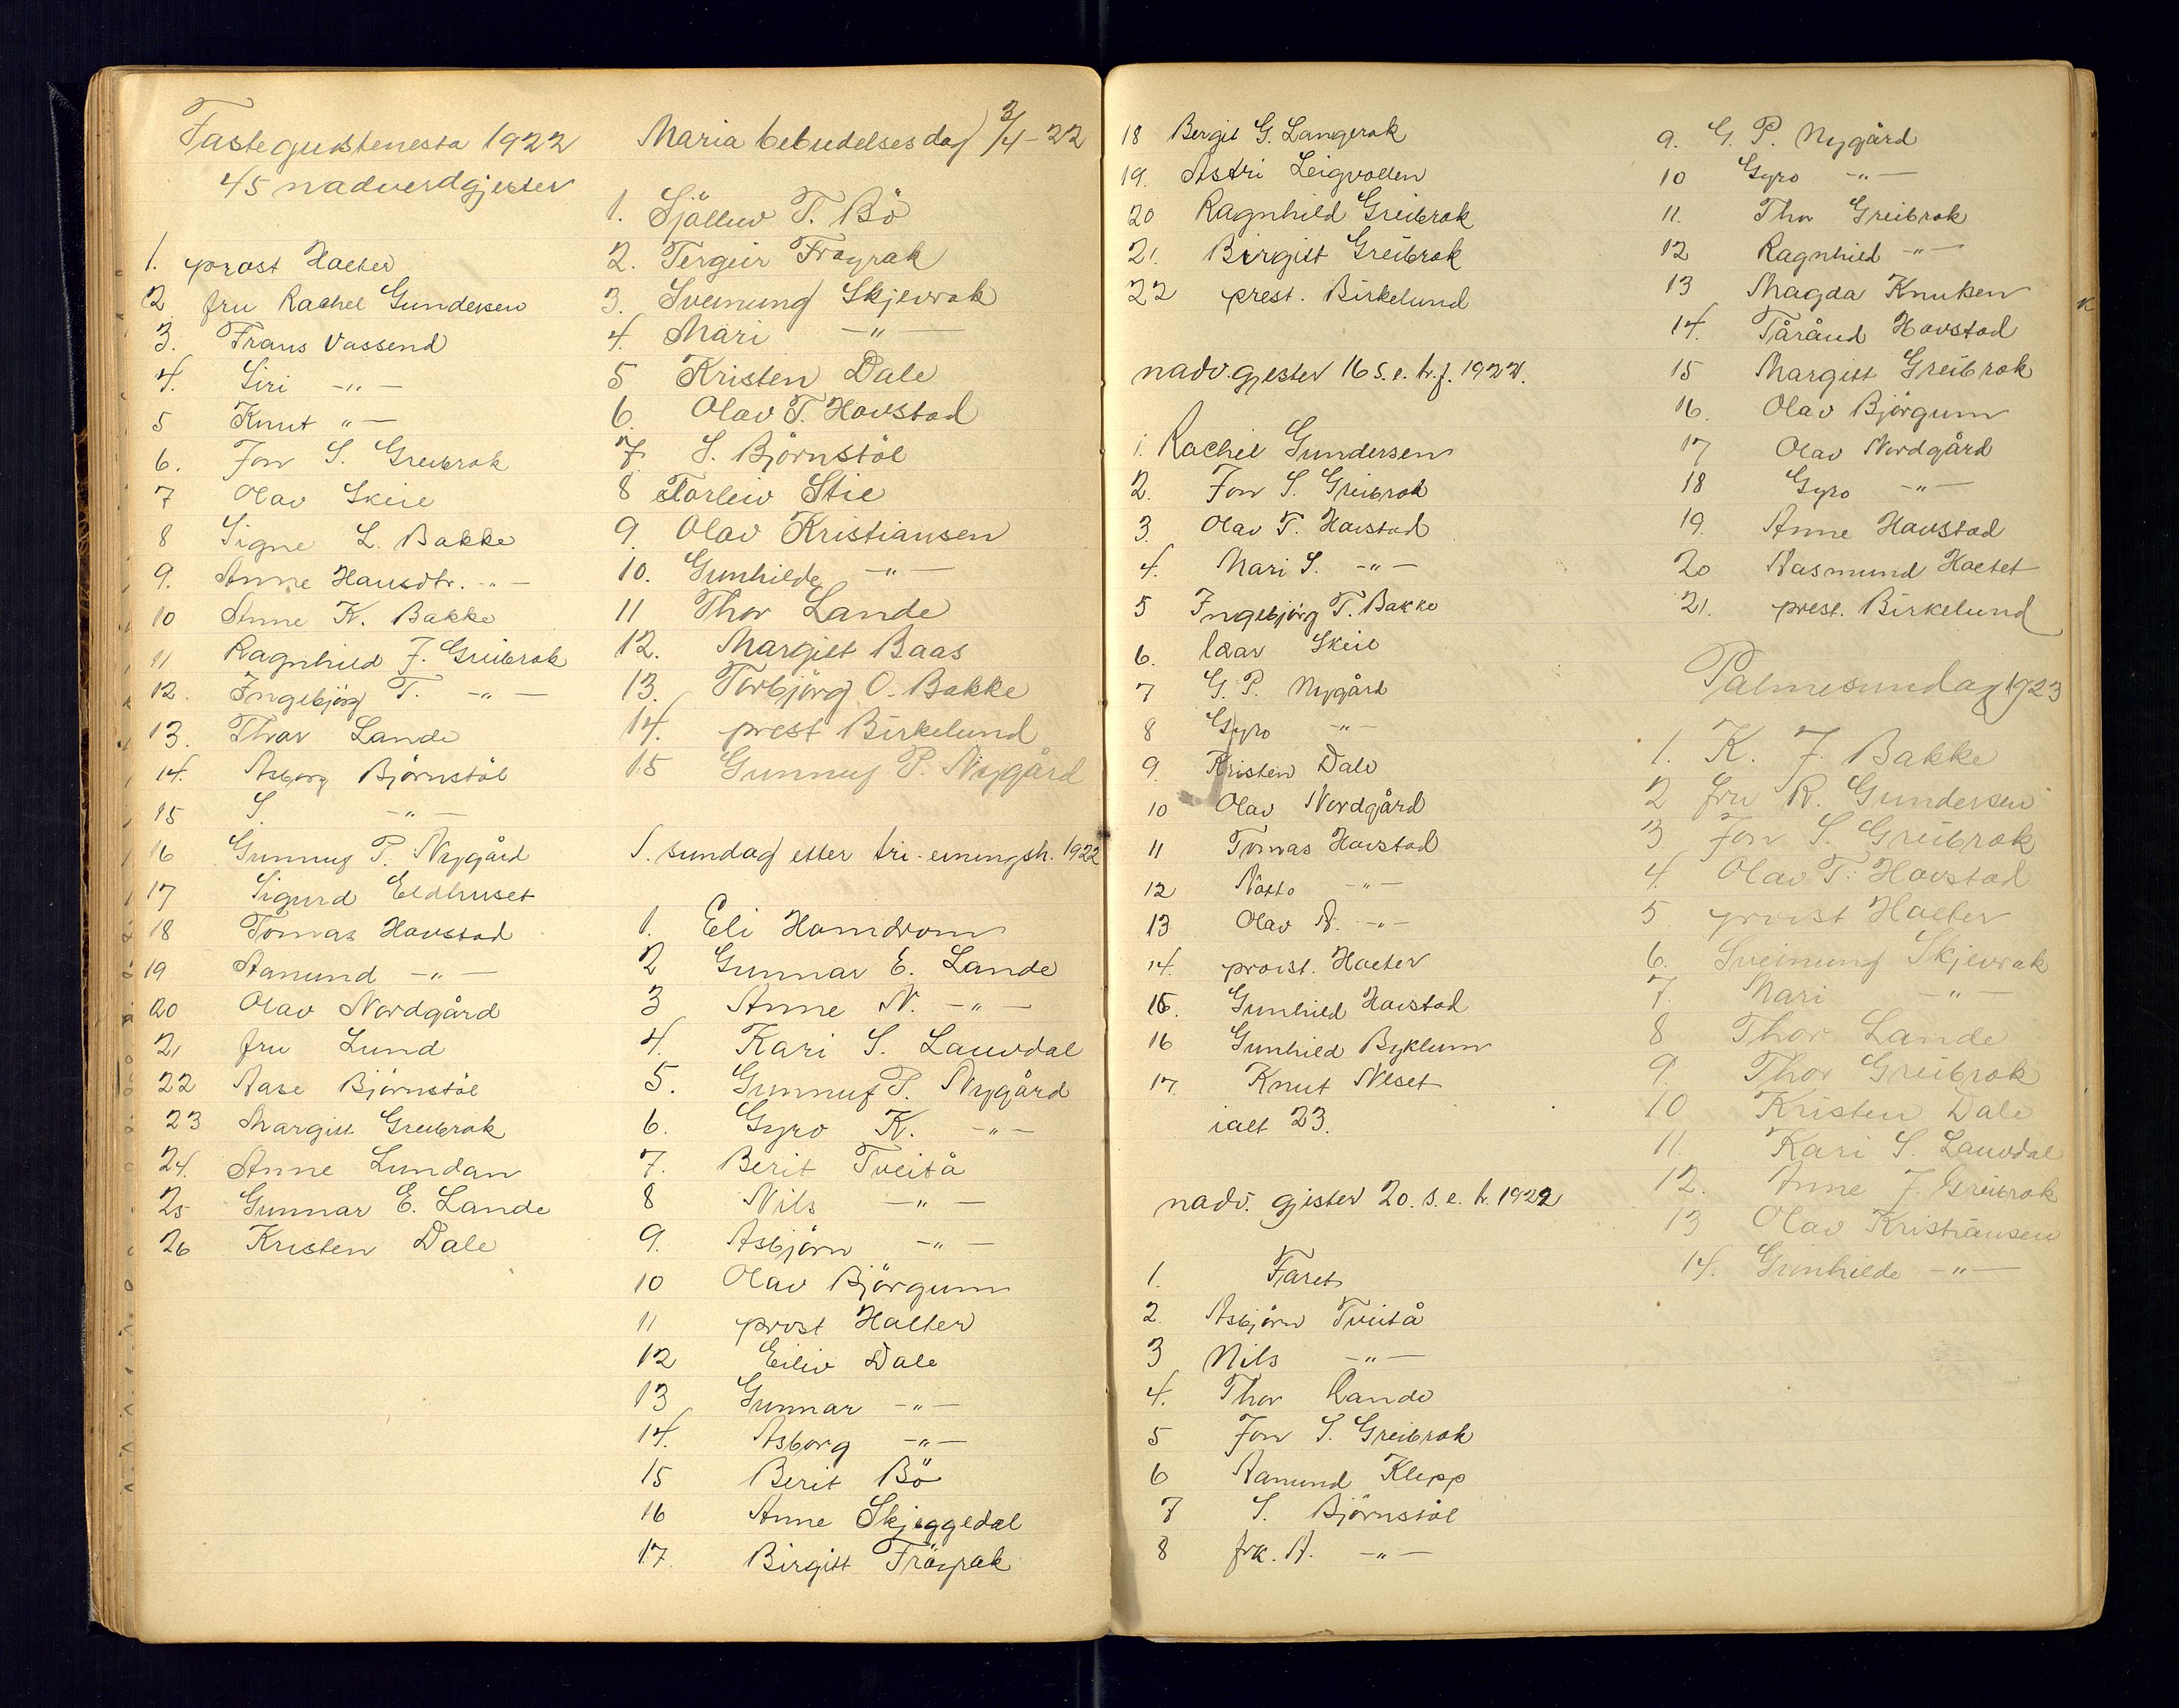 Fastegudstenesta 1922
45 nadverdgjester
1. prost Halter
2 fru Rachel Gundersen
3. Frans Vassend
4. Siri -"-
5 Knut "-
6. Jon S. Greibrok
7 Olav Skeie
8 Signe L. Bakke
9. Anne Hansdtr. -"-
10 Anne K. Bakke
11 Ragnhild J. Greibrok
12. Ingebjörg T. -"-
13. Thor Lande
14. Asborg Björnstöl
15 S. -"-
16 Gunnuf P. Nygård
17 Sigurd Eldhuset
18 Tomas Hovstad
19 Aamund -"-
20 Olav Nordgård
21 fru Lund
22 Aase Björnstöl
23 Margitt Greibrok
24. Anne Lundan
25 Gunnar E. Lande
26 Kristen Dale
Maria bebudelsesdag 2/4-22
1. Sjöluv T. Bö
2. Tergeir Fröyrak
3. Sveinung Skjevrak
4. Mari -"-
5 Kristen Dale
6. Olav T. Hovstad
7. S. Björnstöl
8 Torleiv Stie
9. Olav Kristiansen
10. Gunhilde -"-
11 Thor Lande
12. Margitt Baas
13. Torbjörg O. Bakke
14. prest Birkelund
15 Gunnuf P. Nygård
1. sundag etter tri-einingsh. 1922
1. Eli Homdrom
2 Gunnar E. Lande
3 Anne N. -"-
4. Kari S. Lauvdal
5. Gunnuf P. Nygård
6. Gyro K. -"-
7. Berit Tveitå
8 Nils -"-
9. Asbjörn -"-
10 Olav Björgum
11 prost Halter
12 Eiliv Dale
13 Gunnar -"-
14. Asborg -"-
15 Berit Bö
16 Anne Skjeggedal
17. Birgitt Fröyrak
18 Bergit G. Langerak
19. Astri Leigvollen
20 Ragnhild Greibrok
21. Birgitt Greibrok
22 prest. Birkelund
nadv.gjester 16 s.e. tr.f. 1922.
1. Rachel Gundersen
2. Jon S. Greibrok
3. Olav T. Hovstad
4. Mari S. -"-
5 Ingebjörg T. Bakke
6. Skeie
7 G. P. Nygård
8 Gyro -"-
9. Kristen Dale
10 Olav Nordgård
11 Tomas Hovstad
12 -"-
13 Olav A. -"-
14. prost. Halter
15. Gunhild Hovstad
16 Gunhild Byklum
17. Knut Neset
ialt 23.
nadv. gjester 20. s.e. tr. 1922
1. Faret
2. Asbjörn Tveitå
3 Nils -"-
4. Thor Lande
5 Jon S. Greibrok
6 Aamund Klepp
7 S. Björnstöl
8 frk. A. -"-
9. G. P. Nygård
10 Gyro -"-
11. Thor Greibrok
12 Ragnhild -"-
13 Magda Knutsen
14. Tårånd Hovstad
15 Margitt Greibrok
16. Olav Björgum
17 Olav Nordgård
18 Gyro -"-
19. Anne Hovstad
20 Aasmund Hoslet
21. prest. Birkelund
Palmesundag 1923
1. K. J. Bakke
2 fru R. Gundersen
3 Jon S. Greibrok
4. Olav T. Hovstad
5 prost Halter
6. Sveinung Skjevrak
7. Mari -"-
8 Thor Lande
9. Thor Greibrok
10 Kristen Dale
11. Kari S. Lauvdal
12. Anne J. Greibrok
13 Olav Kristiansen
14. Gunhilde -"-